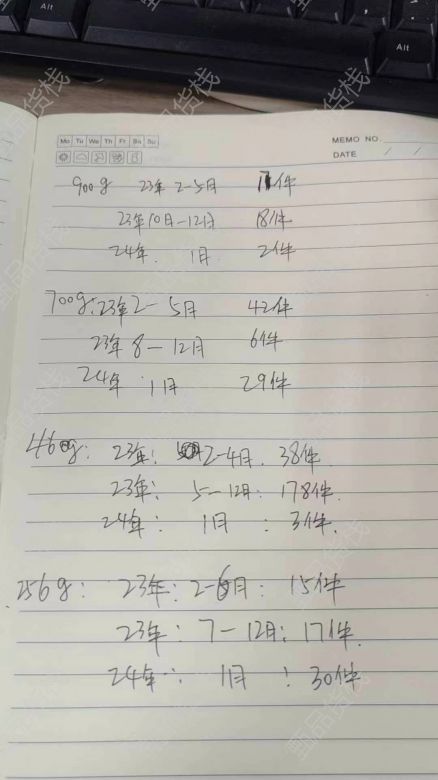 Alt
Alt
Mo Tu We Th Fr Sa Su
MEMO NO.
DATE / /
900g 23年 2-5月 11件
23年10月-12月 18件
24年. 1月 2件
700g: 23年2-5月 42件
23年 8-12月 6件
24年 1月 29件
460g: 23年: 2-4月. 38件
23年: 5-12月: 178件.
24年: 1月: 3件.
256g: 23年: 2-6月: 15件
23年: 7-12月: 17件.
24年: 1月: 30件